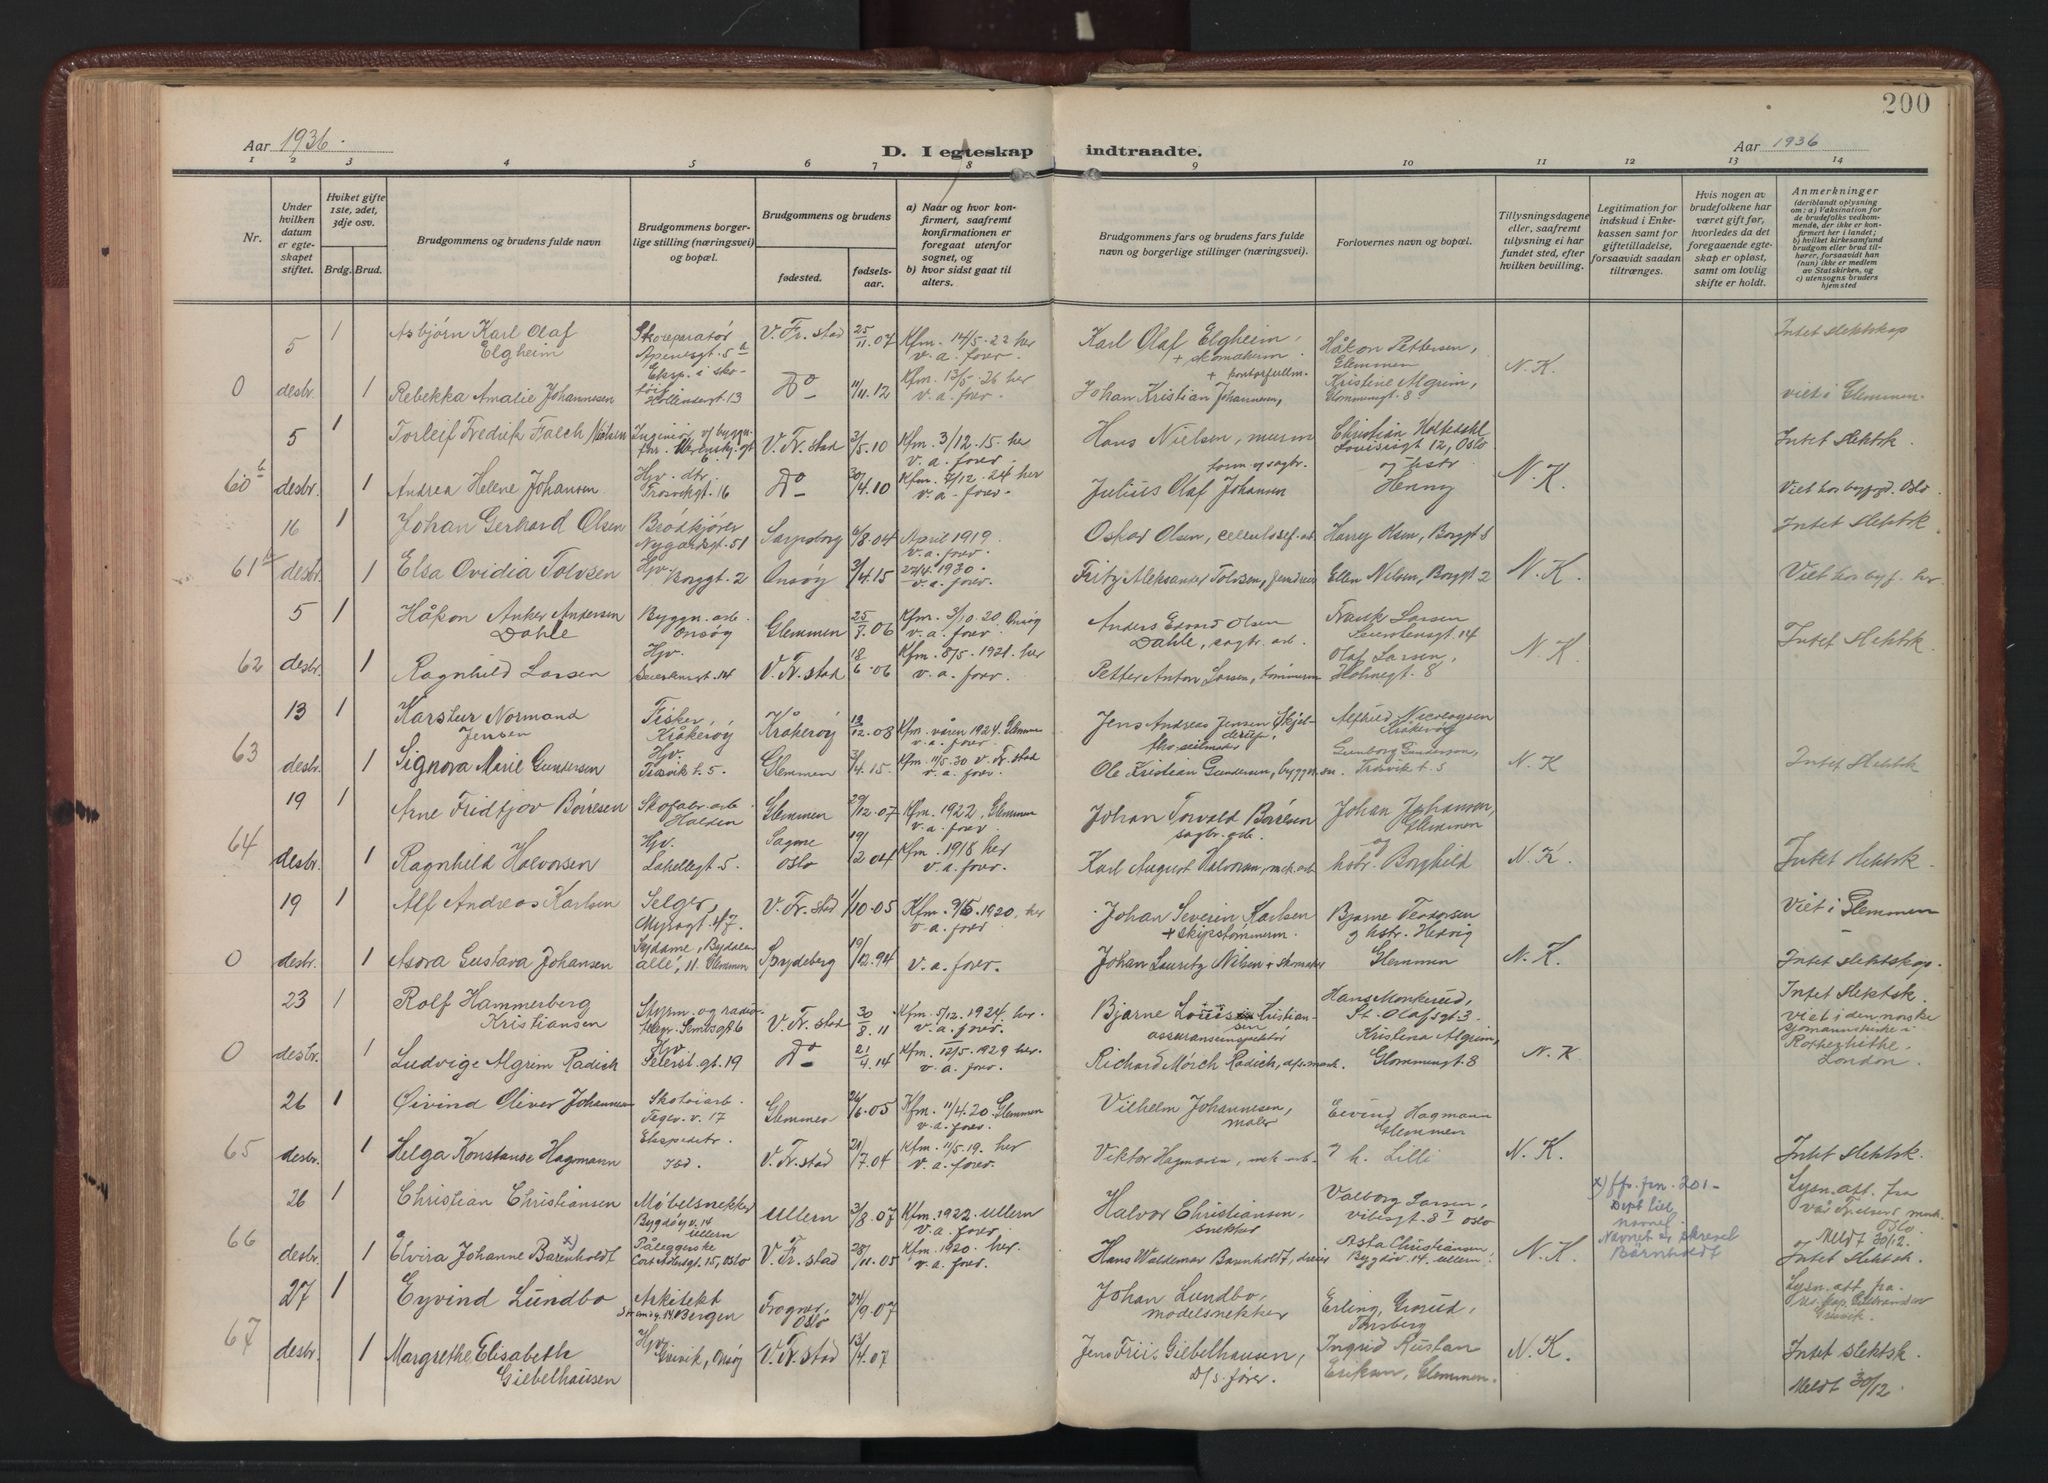 200
Aar 1936.
D. I egteskap indtraadte.
Aar 1936
1 2 3 4 5 6 7 8 9 10 11 12 13 14
Nr.
Under hvilken datum er egteskapet stiftet.
Hviket gifte 1ste, 2det, 3dje osv.
Brdg. Brud.
Brudgommens og brudens fulde navn
Brudgommens borgerlige stilling (næringsvei) og bopæl.
Brudgommens og brudens
fødested.
fødselsaar.
a) Naar og hvor konfirmert, saafremt konfirmationen er foregaat utenfor sognet, og
b) hvor sidst gaat til alters.
Brudgommens fars og brudens fars fulde navn og borgerlige stillinger (næringsvei).
Forlovernes navn og bopæl.
Tillysningsdagene eller, saafremt tillysning ei har fundet sted, efter hvilken bevilling.
Legitimation for indskud i Enkekassen samt for giftetilladelse, forsaavidt saadan tiltrænges.
Hvis nogen av brudefolkene har været gift før, hvorledes da det foregaaende egteskap er opløst, samt om lovlig skifte er holdt.
Anmerkninger
(deriblandt oplysning om: a) Vaksination for de brudefolks vedkommende, der ikke er konfirmert her i landet; b) hvilket kirkesamfund brudgom eller brud tilhører, forsaavidt han (hun) ikke er medlem av Statskirken, og c) utensogns bruders hjemsted
5 1 Asbjørn Karl Olaf Elgheim Skoreparatør Apenesgt. 5a V. Fr. stad 25/11.07 Kfm. 14/5.22 her v. a. forer. Karl Olaf Elgheim, + skomakerm. Håkon Pettersen, Glemmen Intet slektskap
0 desbr. 1 Rebekka Amalie Johannesen Eksp. i skotøif. Hollendergt. 13 Do 11/11.12 Kfm. 13/5.26 her v. a. forer. Johan Kristian Johannesen, + kontorfullm. Kristine Algrim, Glommengt. 8 N. K. viet i Glemmen.
5 1 Torleif Fredrik Falch Nielsen Ingeniør v/ byggn. V. Fr. stad 3/5.10 Kfm. 3/12.15. her v. a. forer. Hans Nielsen, murm Christian Holtedahl Louisesgt 12, Oslo Intet slektsk.
60b desbr. 1 Andrea Helene Johansen Hjv. dtr. Trosvikgt. 16 Do 20/4.10 Kfm. 7/12.24 her v. a. forer. Julius Olaf Johansen og hstr. Henny N. K. Viet hos byfgd. Oslo.
16 1 Johan Gerhard Olsen Brødkjører Nygårdsgt. 51 Sarpsborg 6/8.04 April 1919 v. a. forer. Oskar Olsen, cellulosef. arb. Harry Olsen, Borggt 8 Intet slektsk.
61b desbr. 1 Elsa Ovidia Tolvsen Hjv Borggt. 2 Onsøy 3/4.15 27/4 1930. v. a. forer. Fritz Aleksander Tolvsen, Ellen Nilsen, Borggt 2 N. K. Viet hos byf. her
5 1 Håkon Anker Andersen Dahle Byggn. arb. Onsøy Glemmen 25/7.06 Kfm. 3/10.20. Onsøy v. a. forer. Anders Edvard Olsen Dahle, sagbr. arb. Frank Larsen Leierstensgt. 14 Intet slektsk.
62 desbr. 1 Ragnhild Larsen Hjv. Leierstensgt. 14 V. Fr. stad 18/6.06 Kfm. 8/5.1921. her v. a. forer. Petter Anton Larsen, tømmerm Olaf Larsen, Holmegt. 8 N. K
13 1 Karstein Normand Jensen Fisker, Kråkerøy Kråkerøy 13/12.08 Kfm. våren 1924. Glemmen v. a. forer. Jens Andreas Jensen Alfhild Nicolaysen Kråkerøy
63 desbr. 1 Signora Marie Gundersen Hjv. Trosvik t. 5. Glemmen 3/4.15. Kfm. 11/5.30 V. Fr. stad v. a. forer. Ole Kristian Gundersen, byggm. Gunborg Gundersen, Trosvik t. 5 N. K Intet slektsk
19 1 Arne Fridtjov Børresen Skofabr. arb Halden Glemmen 29/12.07 Kfm. 1922, Glemmen v. a. forer. Johan Torvald Børresen sagbr. arb. Johan Johansen, Glemmen
64 desbr. 1 Ragnhild Halvorsen Hjv. Lahellegt 5. Sagene Oslo 19/2 04 Kfm. 1918 her v. a. forer. Karl August Halvorsen, mek. arb og hstr. Borghild N. K. Intet slektsk.
19 1 Alf Andreas Karlsen Selger, Myragt. 47. V. Fr. stad 1/10.05 Kfm. 9/5.1920. her v. a. forer. Johan Severin Karlsen + skipstømmerm. Bjarne Teodorsen og hstr. Hedvig Viet i Glemmen
0 desbr. 1 Asora Gustava Johansen Sydame, Bydalen allé, 11. Glemmen Spydeberg 19/12.94 v. a. forer. Johan Lauritz Nilsen + skomaker Glemmen N. K. Intet slektskap.
23 1 Rolf Hammerberg Kristiansen Styrm. og radiotelegr. V. Fr. stad 30/8.11 Kfm. 5/12.1924. her. v. a. forer. Bjarne Louis Kristiansen assuranseinspektør Hans Monkerud, St. Olafsgt. 3. Intet slektsk. viet i den norske sjømannskirke i Rotherhithe, London.
0 desbr. 1 Ludvige Algrim Radich Hjv Seierst. gt. 19 Do 21/4.14 Kfm. 12/5.1929 her. v. a. forer. Richard Mørch Radich, Kristina Algrim, Glommengt. 8 N. K
26 1 Øivind Oliver Johannesen Skotøiarb. Tegev. v. 17 Glemmen 26/6.05 Kfm. 11/4.20. Glemmen v. a. forer. Vilhelm Johannesen, maler Eivind Hagmann Glemmen
65 desbr. 1 Helga Konstanse Hagmann Ekspeditr. Isd. V. Fr. stad 21/7.04 Kfm. 11/5.19. her v. a. forer. Viktor Hagmann, mek. arb. og h. Lilli N. K. Intet slektsk.
26 1 Christian Christiansen Møbelsnekker Bygdøy v. 14 Ullern Ullern 3/8.07 Kfm. 1922. Ullern v. a. forer. Halvor Christiansen, snekker Valborg Larsen, Vibesgt. 8I Oslo x) ffr. fm. 201 - Døpt Lysn. att. fra Oslo
66 desbr. 1 Elvira Johanne Barenholdt x) Påleggerske Cort Adelersgt. 15, Oslo V. Fr. stad 28/11.05 Kfm. 1920. her. v. a. forer. Hans Waldemar Barnholdt, dreier Asta Christiansen Bygdøv. 14. Ullern, N. K. navnet. Navnet er skrevet Bårnholdt Meldt 30/12. Intet slektsk.
27 1 Eyvind Lundbo Arkitekt Bergen Frogner, Oslo 24/9.07 Johan Lundbo, modelsnekker Erling Grorud, Tønsberg Lysn. att. fra
67 desbr. 1 Margrethe Elisabeth Giebelhausen Hjv. Onsøy V. Fr. stad 13/4.07 Jens Friis Giebelhausen, D/S. fører. Ingrid Rustan Eriksen, Glemmen. N. K. Intet slektsk. Meldt 30/12.